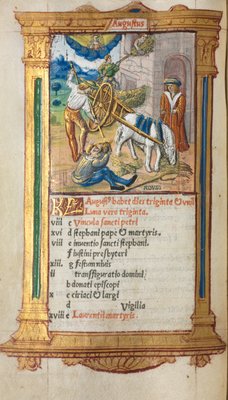 Augustus
KL Augusti habet dies triginta &
Luna vero triginta.
viii c Vincula sancti petri
xvi d stephani pape & martyris.
e inuentio sancti stephani.
f iustini presbyteri
xiii. g festum niuis
transfiguratio domini
b donati episcopi
x c ciriaci & largi
d Vigilia
xviii e Laurentii martyris.